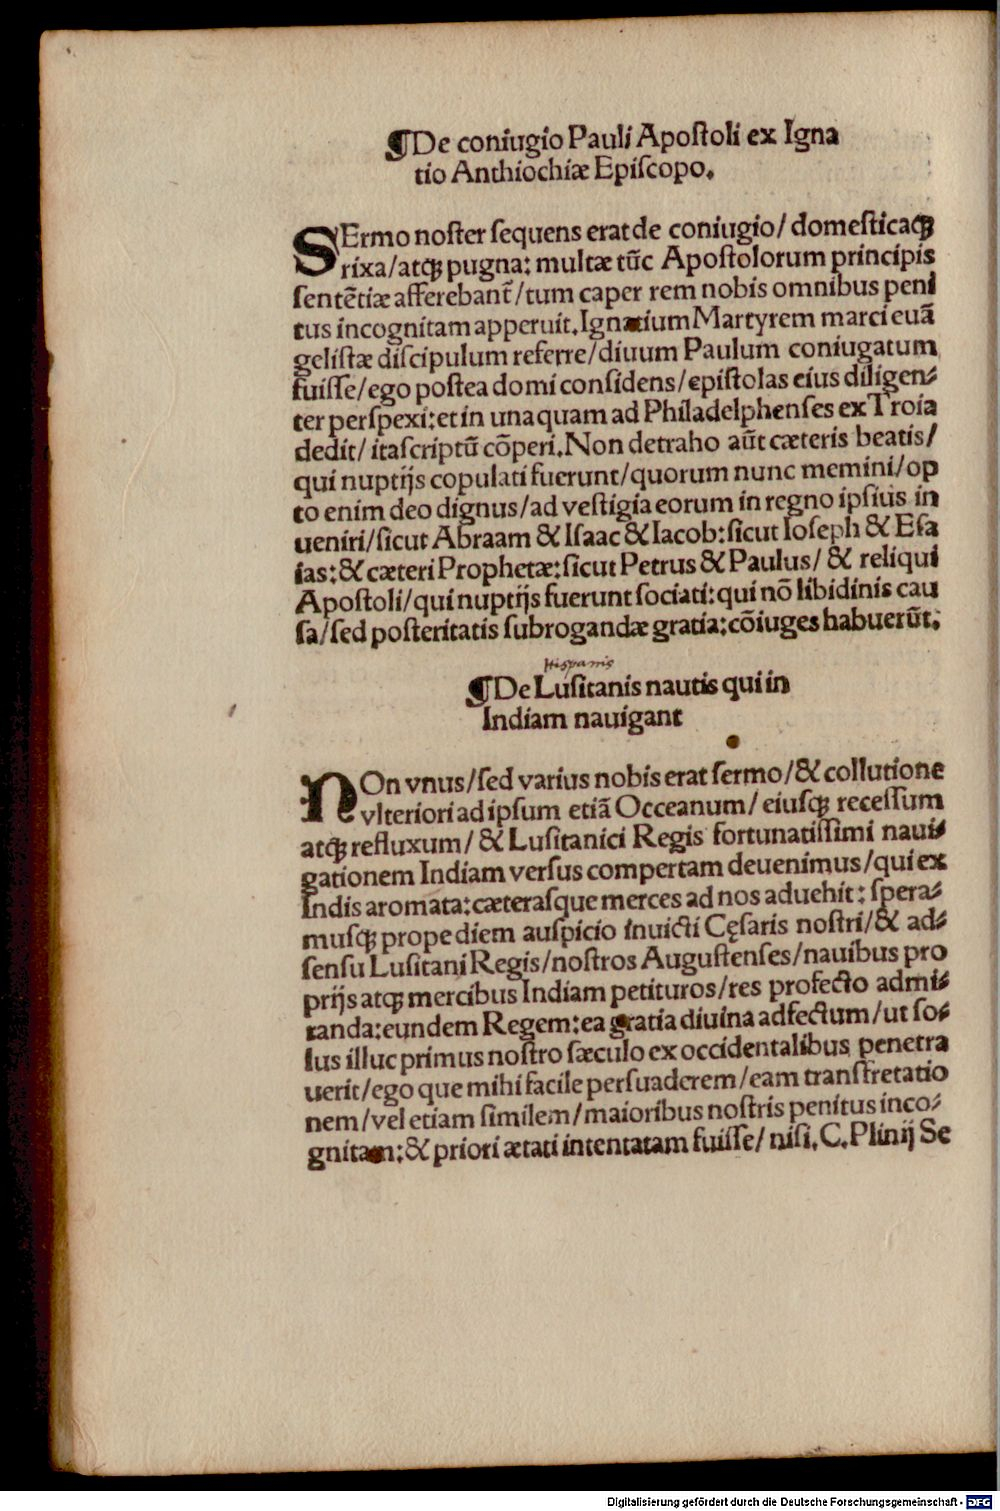 ¶De coniugio Pauli Apoſtoli ex Igna
tio Anthiochiæ Epiſcopo.
SErmo noſter ſequens erat de coniugio/ domeſticaqꝫ
rixa/atqꝫ pugna: multæ tūc Apoſtolorum principis
ſentētiæ afferebant̃/tum caper rem nobis omnibus peni
tus incognitam apperuit.Ignatium Martyrem marci euā
geliſtæ diſcipulum referre/diuum Paulum coniugatum
fuiſſe/ego poſtea domi conſidens/epiſtolas eius diligen⸗
ter perſpexi:et in una quam ad Philadelphenſes ex Troia
dedit/ ita ſcriptū cōperi.Non detraho aūt cæteris beatis/
qui nuptijs copulati fuerunt/quorum nunc memini/op
to enim deo dignus/ad veſtigia eorum in regno ipſius in
ueniri/ſicut Abraam & Iſaac & Iacob:ſicut Ioſeph & Eſa
ias:& cæteri Prophetæ:ſicut Petrus & Paulus/ & reliqui
Apoſtoli/qui nuptijs fuerunt ſociati:qui nō libidinis cau
ſa/ſed poſteritatis ſubrogandæ gratia:cōiuges habuerūt.
Hispanis
¶De Luſitanis nautis qui in
Indiam nauigant
NOn vnus/ſed varius nobis erat ſermo/& collutione
vlteriori ad ipſum etiā Occeanum/ eiuſqꝫ receſſum
atqꝫ refluxum/ & Luſitanici Regis fortunatiſſimi naui⸗
gationem Indiam verſus compertam deuenimus/qui ex
Indis aromata:cæteraſque merces ad nos aduehit: ſpera⸗
muſqꝫ prope diem auſpicio inuicti Cęſaris noſtri/& ad⸗
ſenſu Luſitani Regis/noſtros Auguſtenſes/nauibus pro
prijs atqꝫ mercibus Indiam petituros/res profecto admi⸗
randa:eundem Regem:ea gratia diuina adfectum/ut ſo⸗
lus illuc primus noſtro ſæculo ex occidentalibus penetra
uerit/ego que mihi facile perſuaderem/eam tranſfretatio
nem/vel etiam ſimilem/maioribus noſtris penitus inco⸗
gnitam:& priori ætati intentatam fuiſſe/ niſi.C.Plinij Se
Digitalisierung gefördert durch die Deutsche Forschungsgemeinschaft - DFG